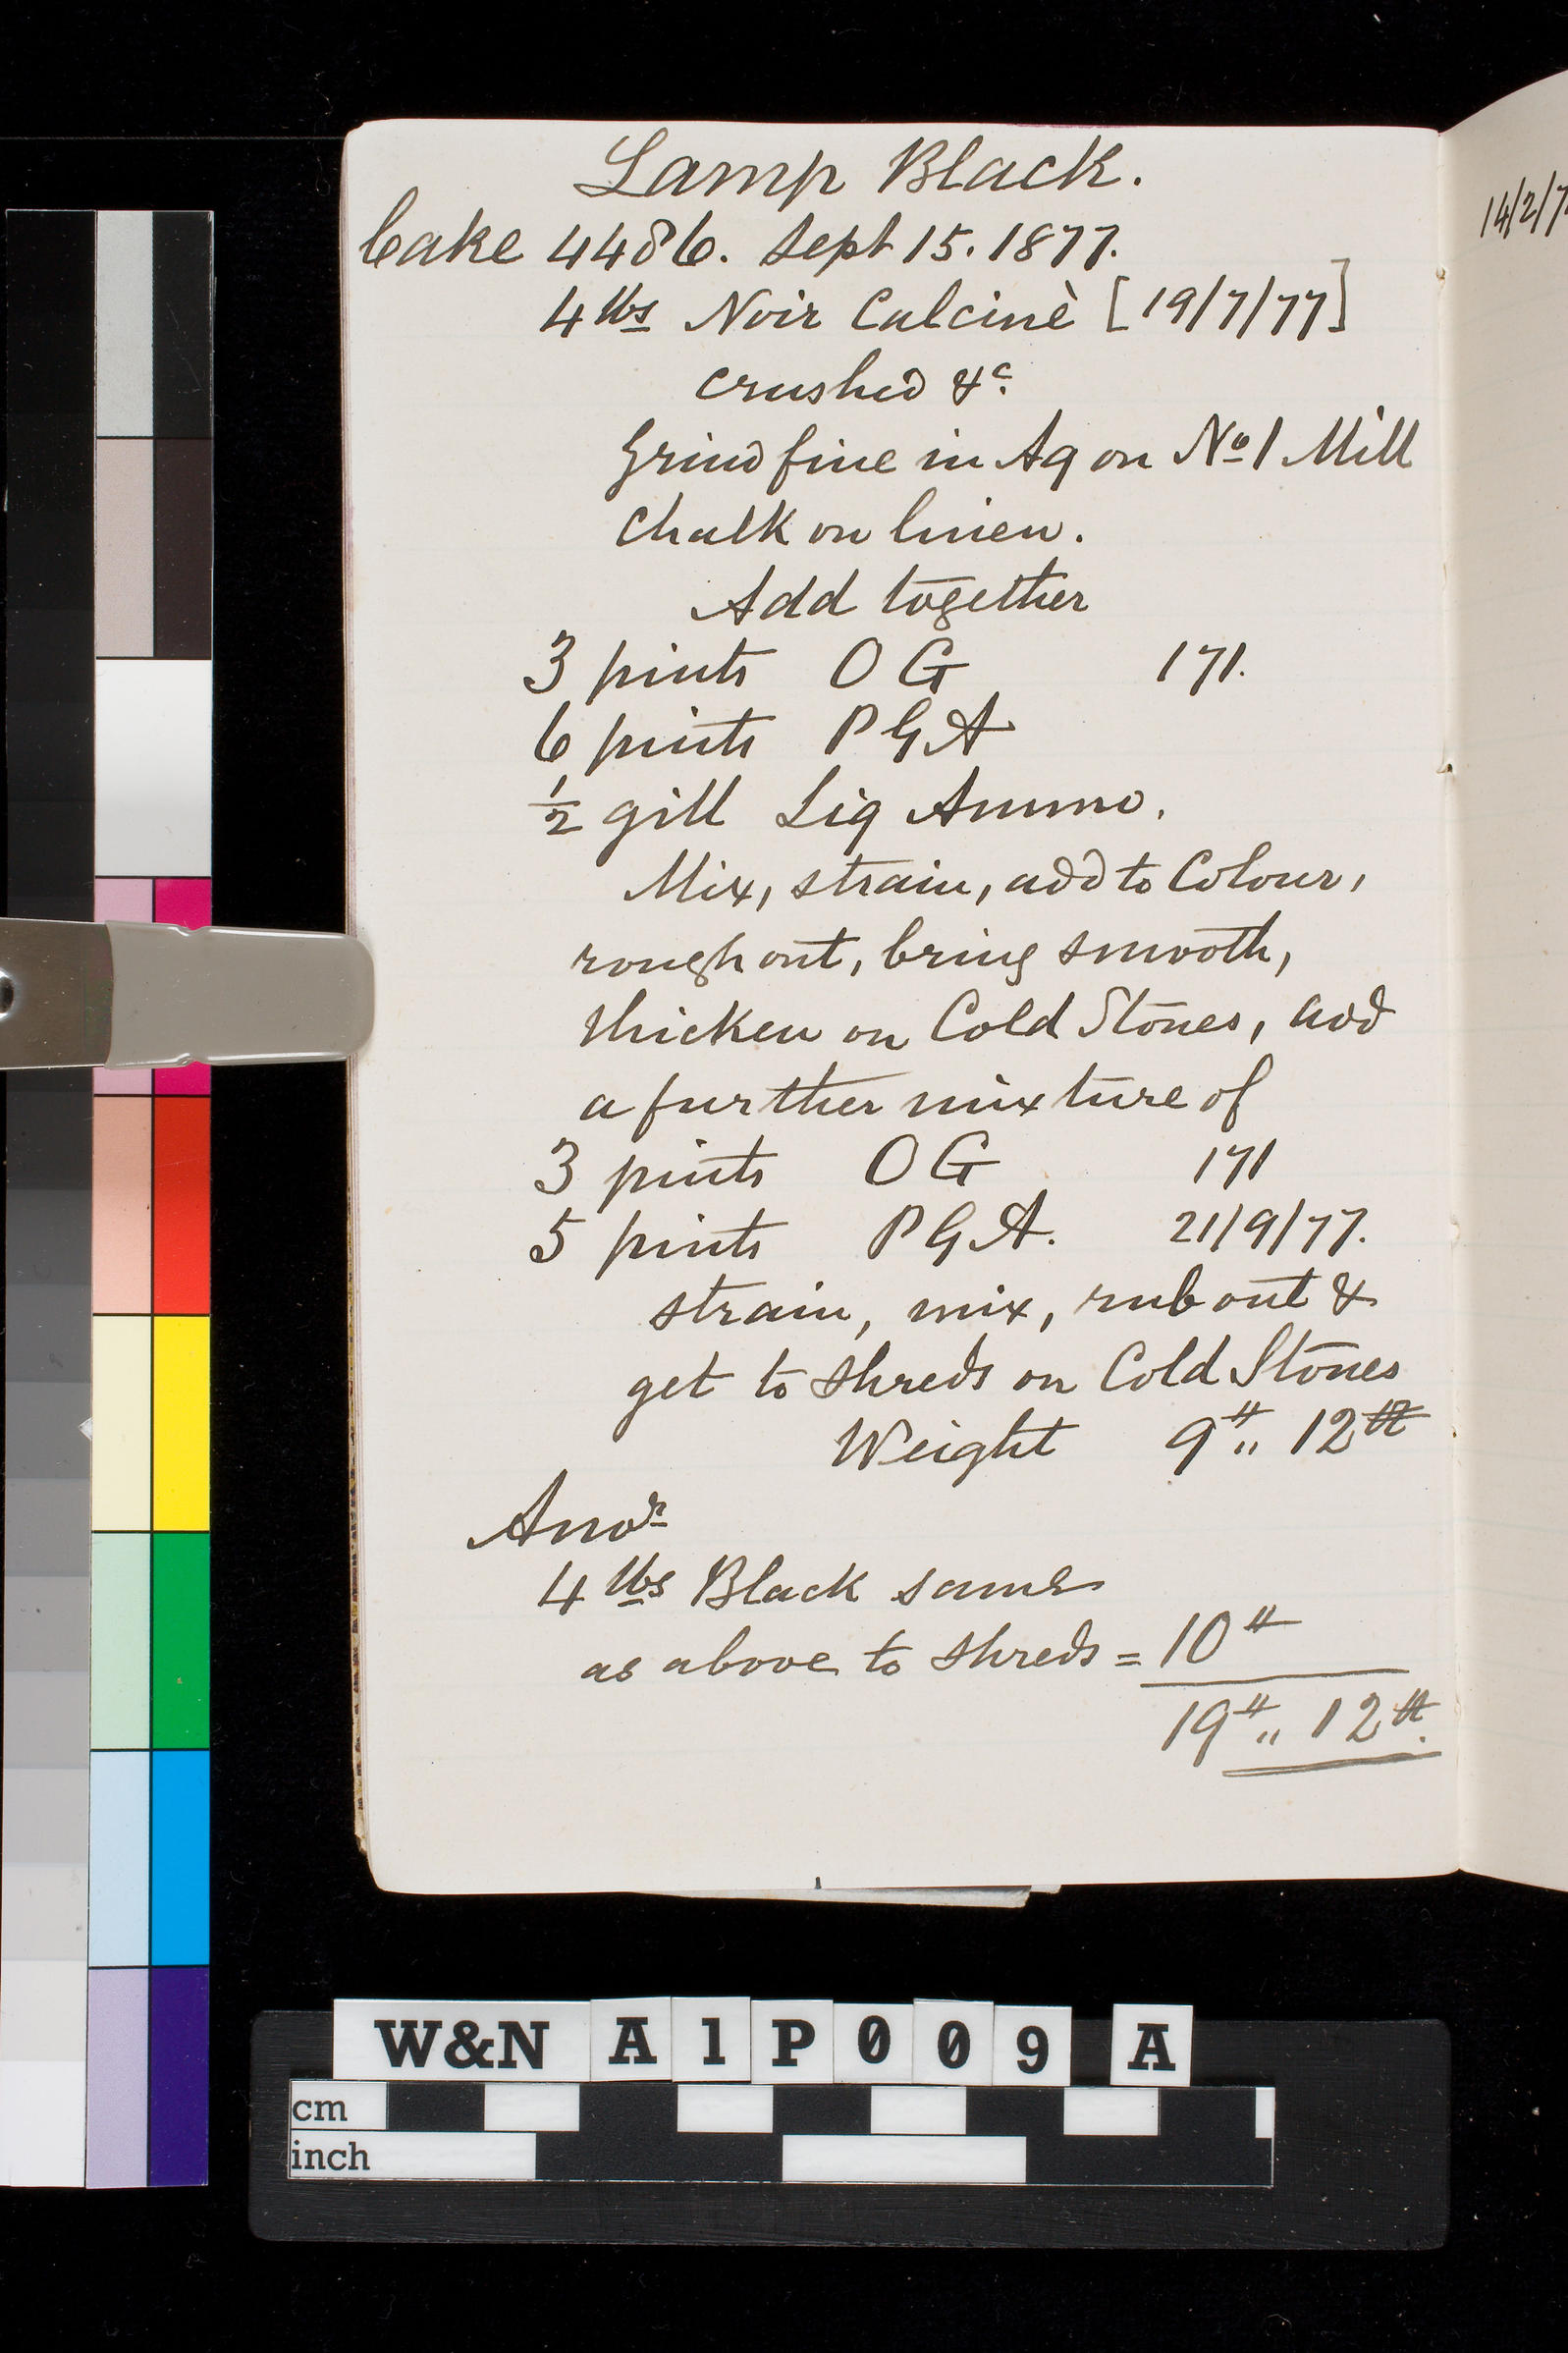 Lamp Black.
Cake 4486. Sept 15. 1877.
4 lbs Noir Calcinè [19/7/77]
crushed &c.
Grind fine in Aq on No 1 Mill
Chalk on linen.
Add together
3 pints O G 171.
6 pints P G A
1/2 gill Liq Ammo.
Mix, strain, add to Colour,
rough out, bring smooth,
thicken on Cold Stones, add
a further mixture of
3 pints O G 171
5 pints P G A. 21/9/77.
strain, mix, rub out &
get to shreds on Cold Stones
Weight 9 „ 12
Anor
4 lbs Black same
as above to shreds = 10
19 „ 12
14/2/7
W&N A1P009 A
cm
inch